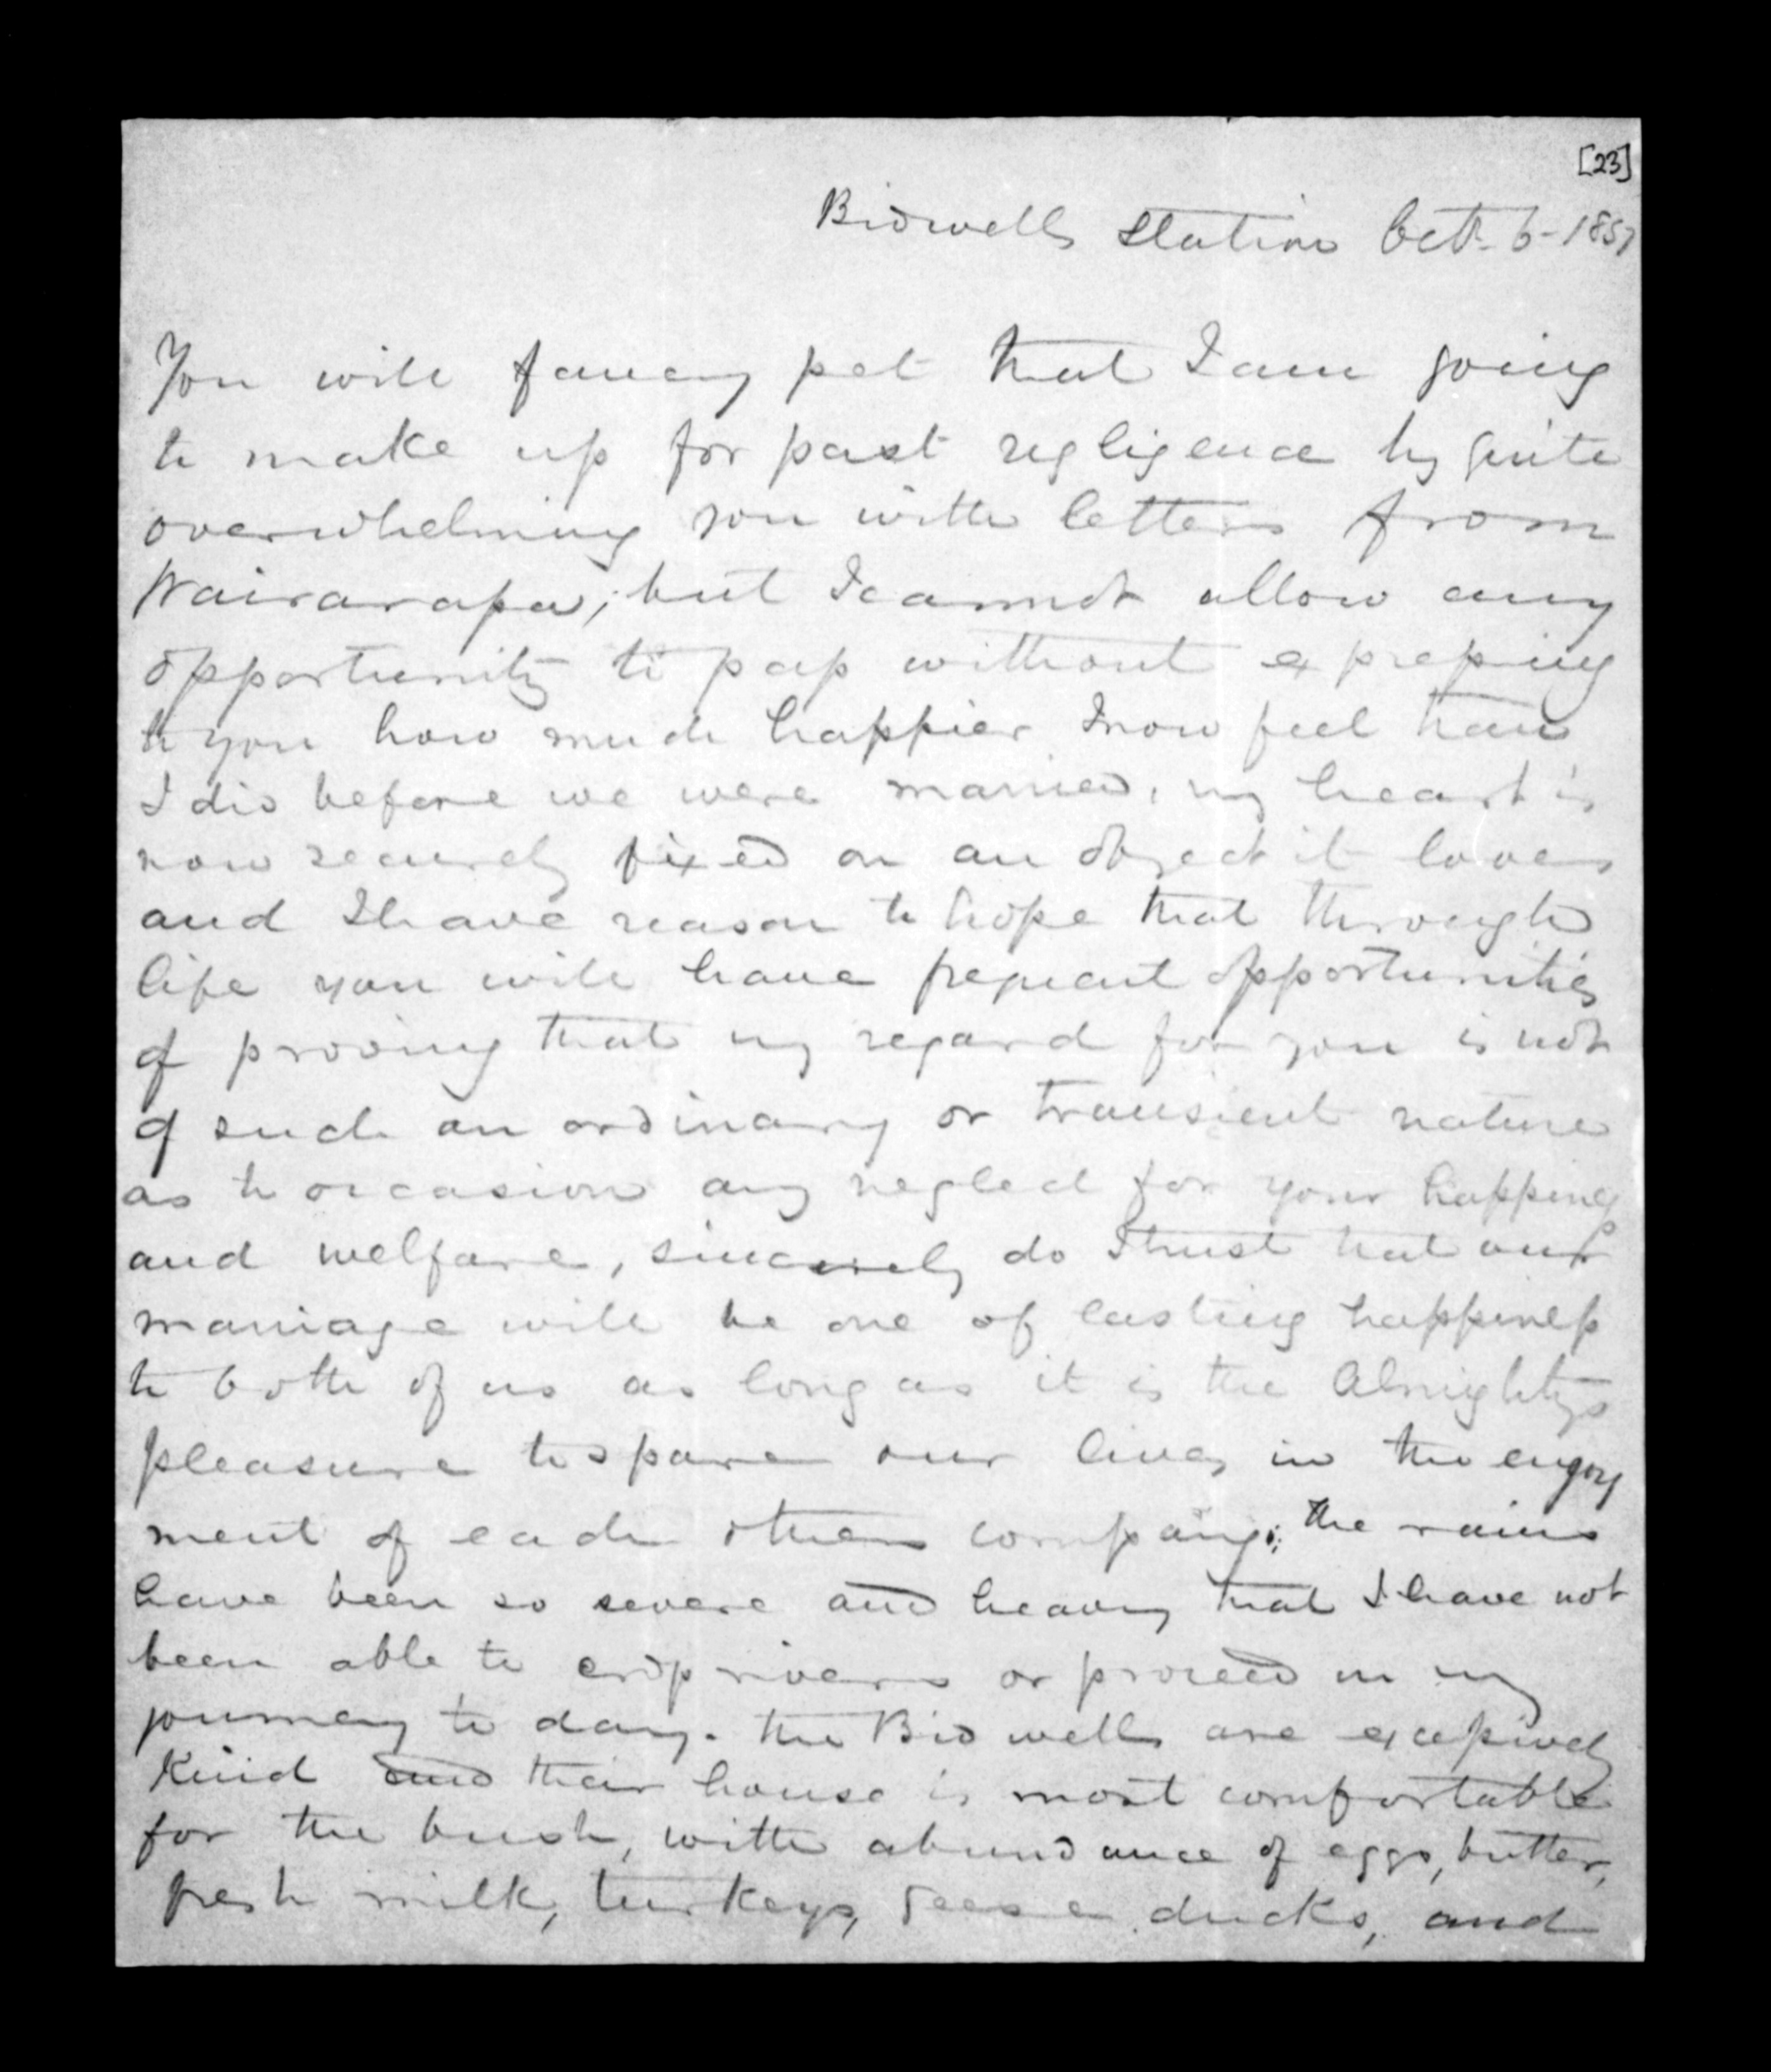 [23]
Bidwells Station Oct. 6 - 1851
You will fancy pet that I am going
to make up for past negligence by quite
overwhelming you with letters from
Wairarapa; but I cannot allow any
opportunity to pass without expressing
to you how much happier I now feel than
I did before we were married, my heart is
now securely fixed on an object it loves
and I have reason to hope that through
life you will have frequent opportunities
of proving that my regard for you is not
of such an ordinary or transient nature
as to occasion any neglect for your happiness
and welfare, sincerely do I trust that our
marriage will be one of lasting happiness
to both of us as long as it is the Almightys
pleasure to spare our lives in the enjoy
ment of each others company; the rains
have been so severe and heavy that I have not
been able to cross rivers or proceed on my
journey to day. the Bidwells are excessively
kind and their house is most comfortable
for the bush, with abundance of eggs, butter,
fresh milk, turkeys, geese ducks, and